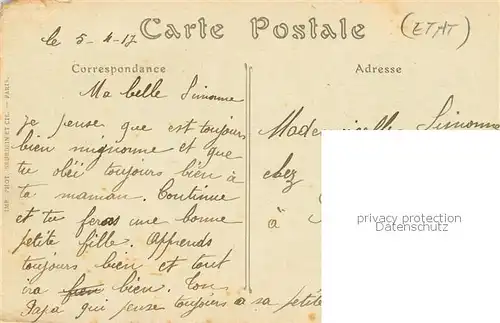 Carte Postale
(ETAT)
le 5-4-17
Correspondance
Adresse
Ma belle Simonne
Je pense que est toujours
bien mignonne et que
tu obéi toujours bien à
ta maman. Continue
et tu feras une bonne
petite fille. Apprends
toujours bien et tout
ira bien. Ton
Papa qui pense toujours à sa petite
Mademoiselle Simonne
chez
à
IMP. PHOT. NEURDEIN ET CIE. — PARIS.
privacy protection
Datenschutz